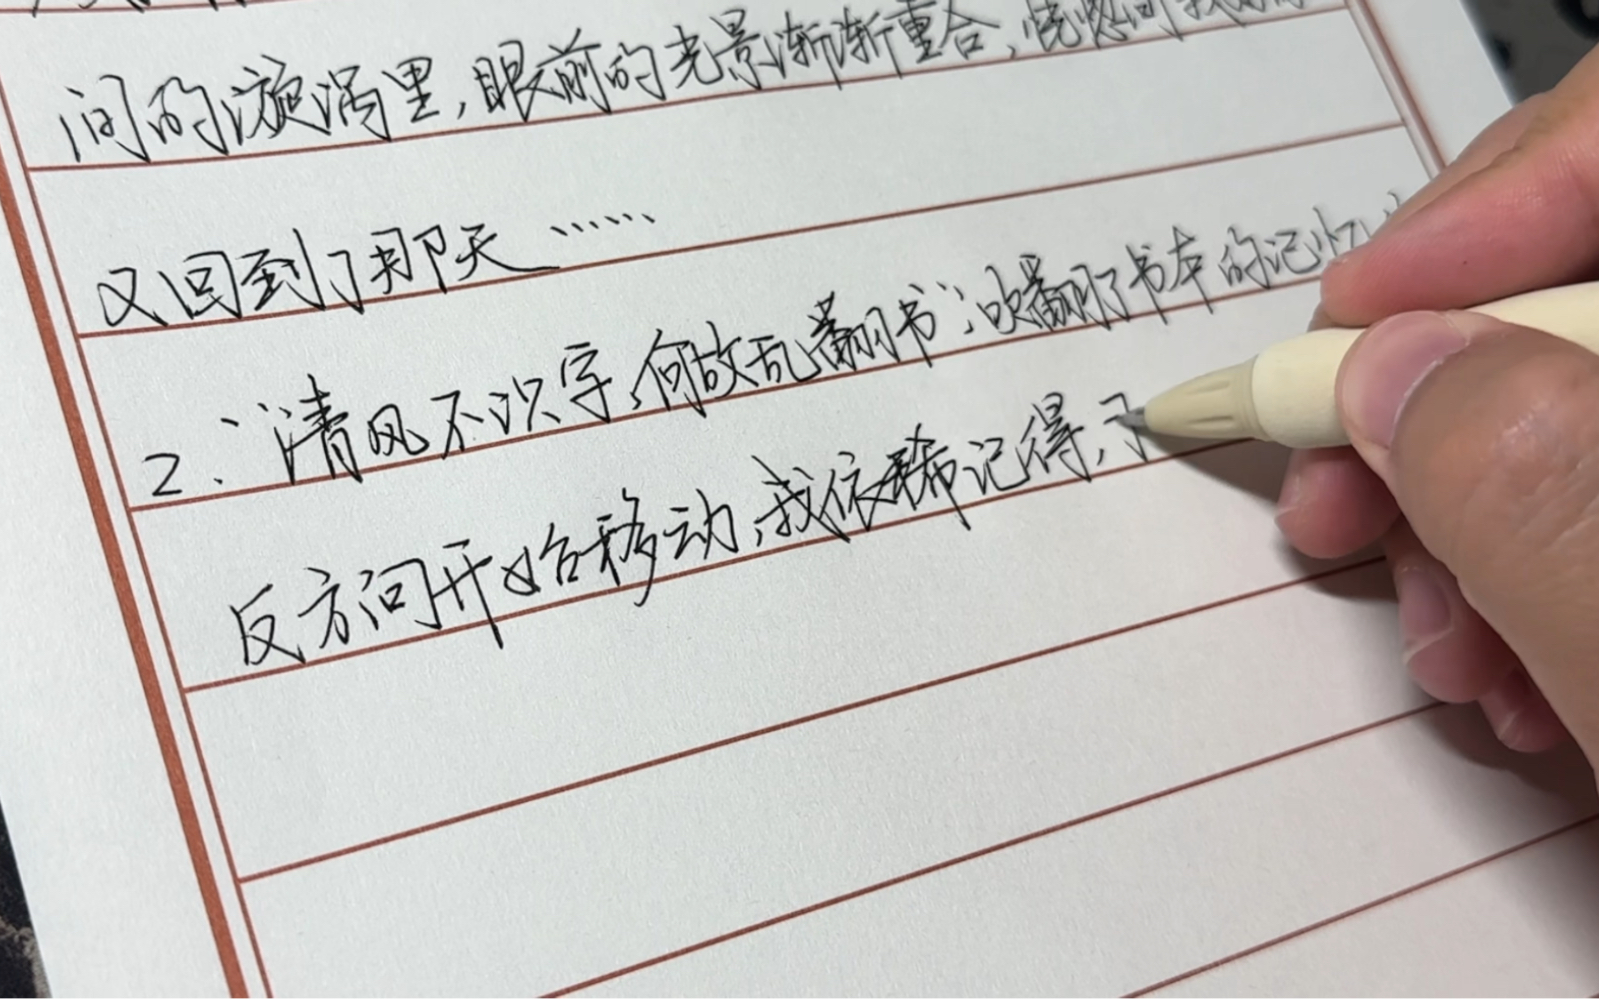 间的漩涡里，眼前的光景渐渐重合，恍惚间我
又回到了那天……
2.“清风不识字，何故乱翻书”；吹翻了书本的记忆
反方向开始移动，我依稀记得，